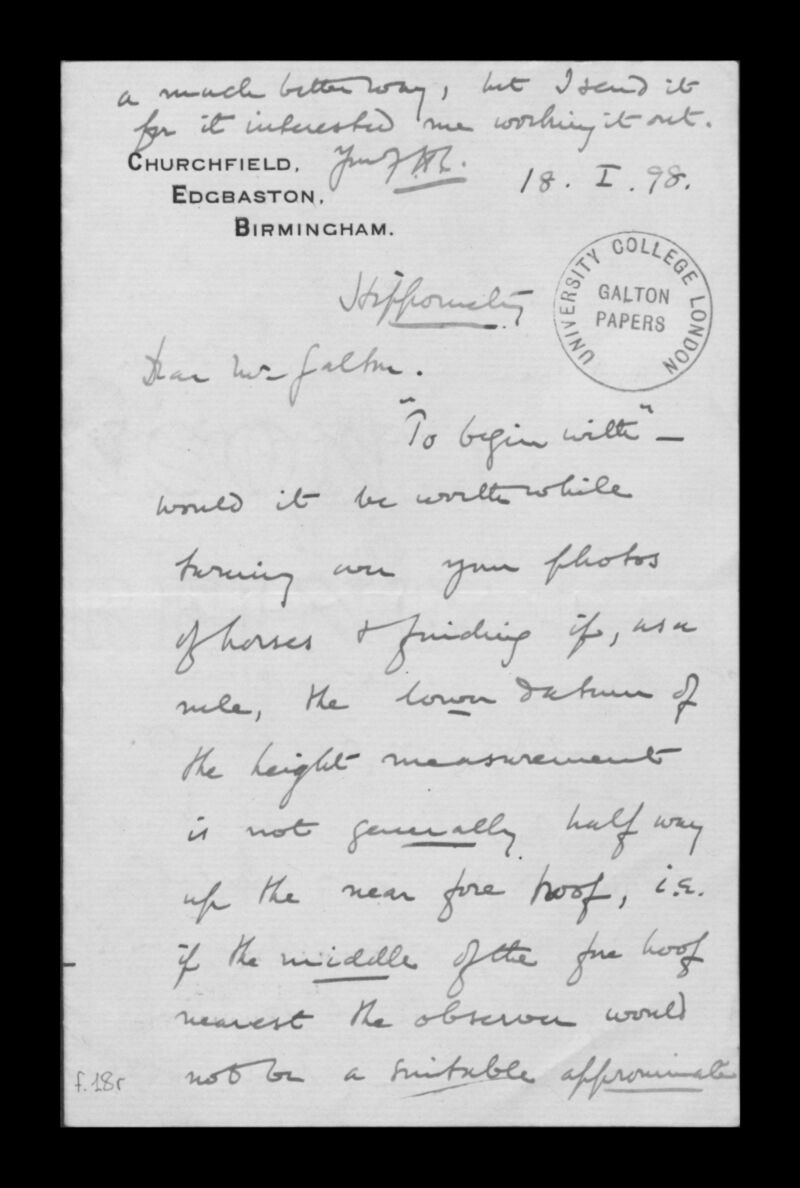 a much better way, but I send it
for it interested me working it out.
CHURCHFIELD,
EDGBASTON,
BIRMINGHAM.
18. I. 98.
UNIVERSITY COLLEGE LONDON
GALTON
PAPERS
Dear Mr Galton.
"To begin with" —
would it be worth while
turning over your photos
of horses & finding if, as a
rule, the lower datum of
the height measurement
is not generally half way
up the near fore hoof, i.e.
if the middle of the fore hoof
nearest the observer would
not be a suitable approximate
f.18r